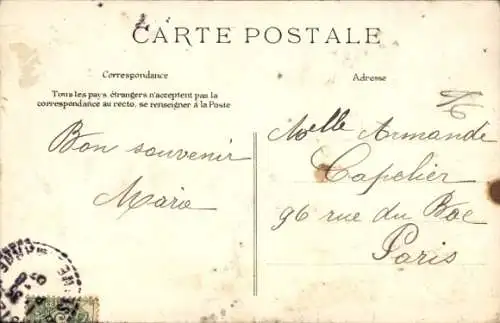 CARTE POSTALE
Correspondance
Tous les pays étrangers n'acceptent pas la
correspondance au recto, se renseigner à la Poste
Adresse
Bon souvenir
Marie
Melle Armande
Capelier
96 rue du Bac
Paris